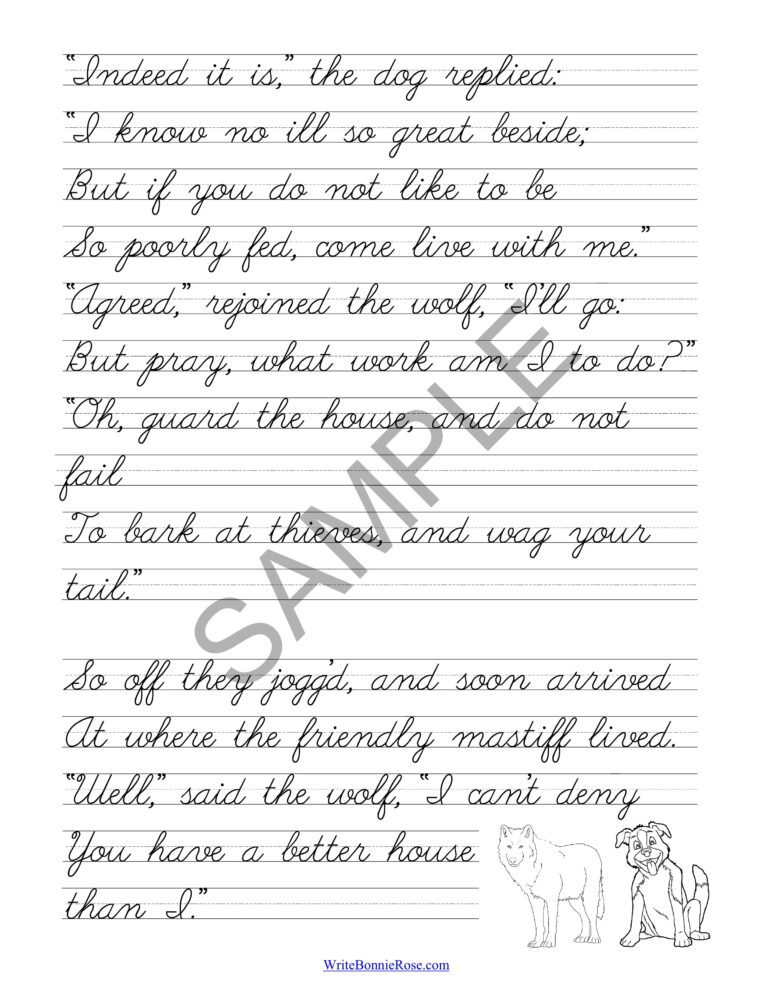 “Indeed it is,” the dog replied:
“I know no ill so great beside;
But if you do not like to be
So poorly fed, come live with me.”
“Agreed,” rejoined the wolf, “I'll go:
But pray, what work am I to do?”
“Oh, guard the house, and do not
fail
To bark at thieves, and wag your
tail.”
SAMPLE
So off they jogg'd, and soon arrived
At where the friendly mastiff lived.
“Well,” said the wolf, “I can't deny
You have a better house
than I.”
WriteBonnieRose.com